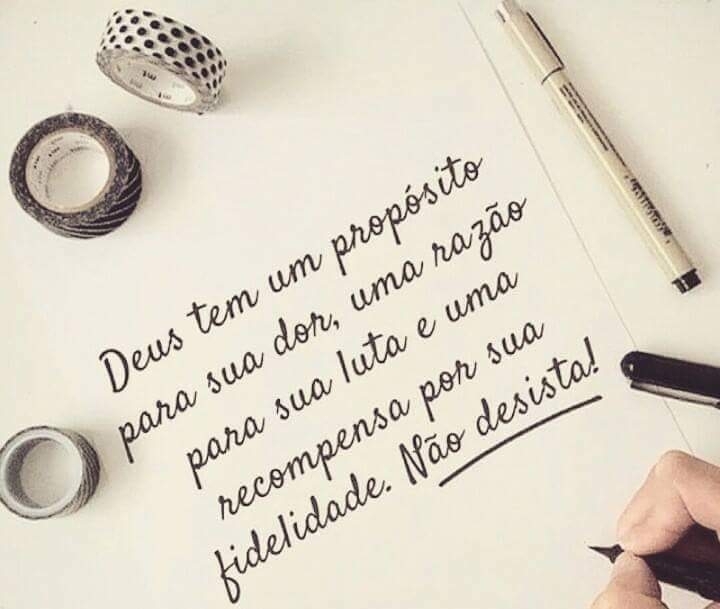 Deus tem um propósito
para sua dor, uma razão
para sua luta e uma
recompensa por sua
fidelidade. Não desista!
mt